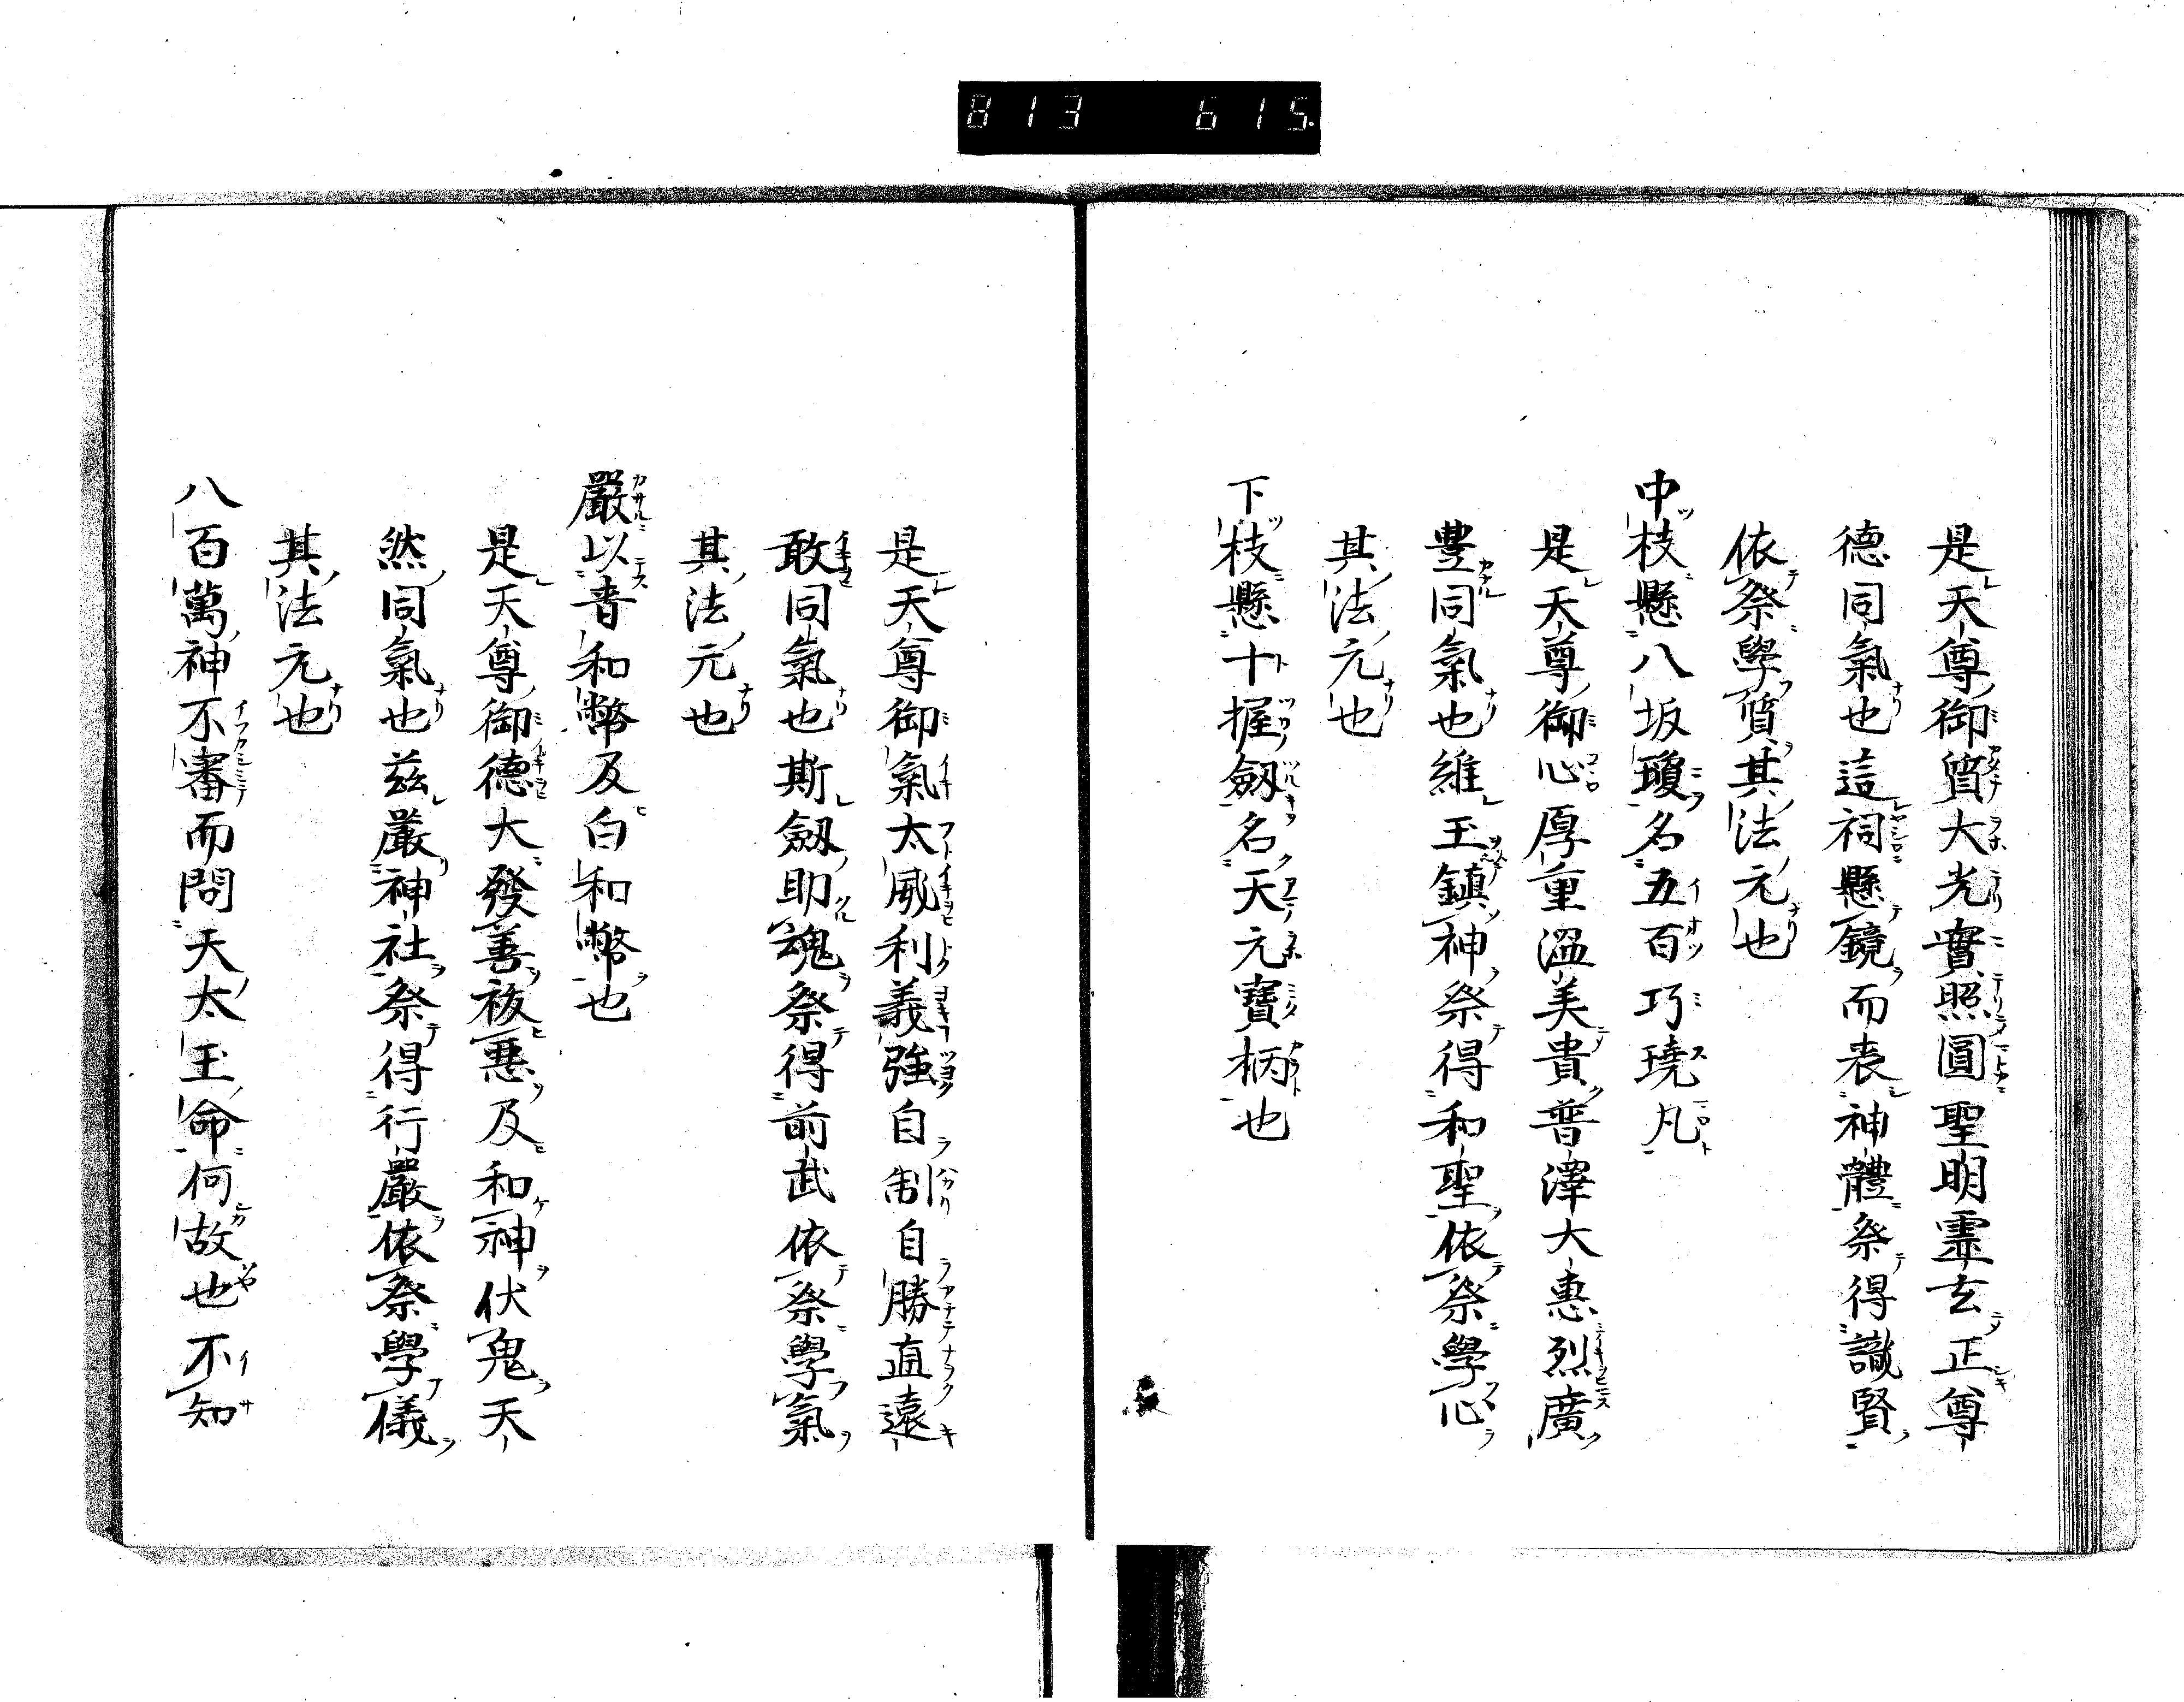 813 615
是天尊御質大光實照圓聖明靈玄正尊
德同氣也這祠懸鏡而表神體祭得識賢
依祭學質其法元也
中枝懸八坂瓊名五百巧璄凡
是天尊御心厚重温美貴普澤大惠烈廣
豐同氣也維玉鎮神祭得和聖依祭學心
其法元也
下枝懸十握劔名天元寶柄也
是天尊御氣太威利義強自制自勝直遠
敢同氣也斯劔助魂祭得前武依祭學氣
其法元也
嚴以青和幣及白和幣也
是天尊御德大發善祓惡及和神伏鬼天
然同氣也兹嚴神社祭得行嚴依祭學儀
其法元也
八百萬神不審而問天太玉命何故也不知